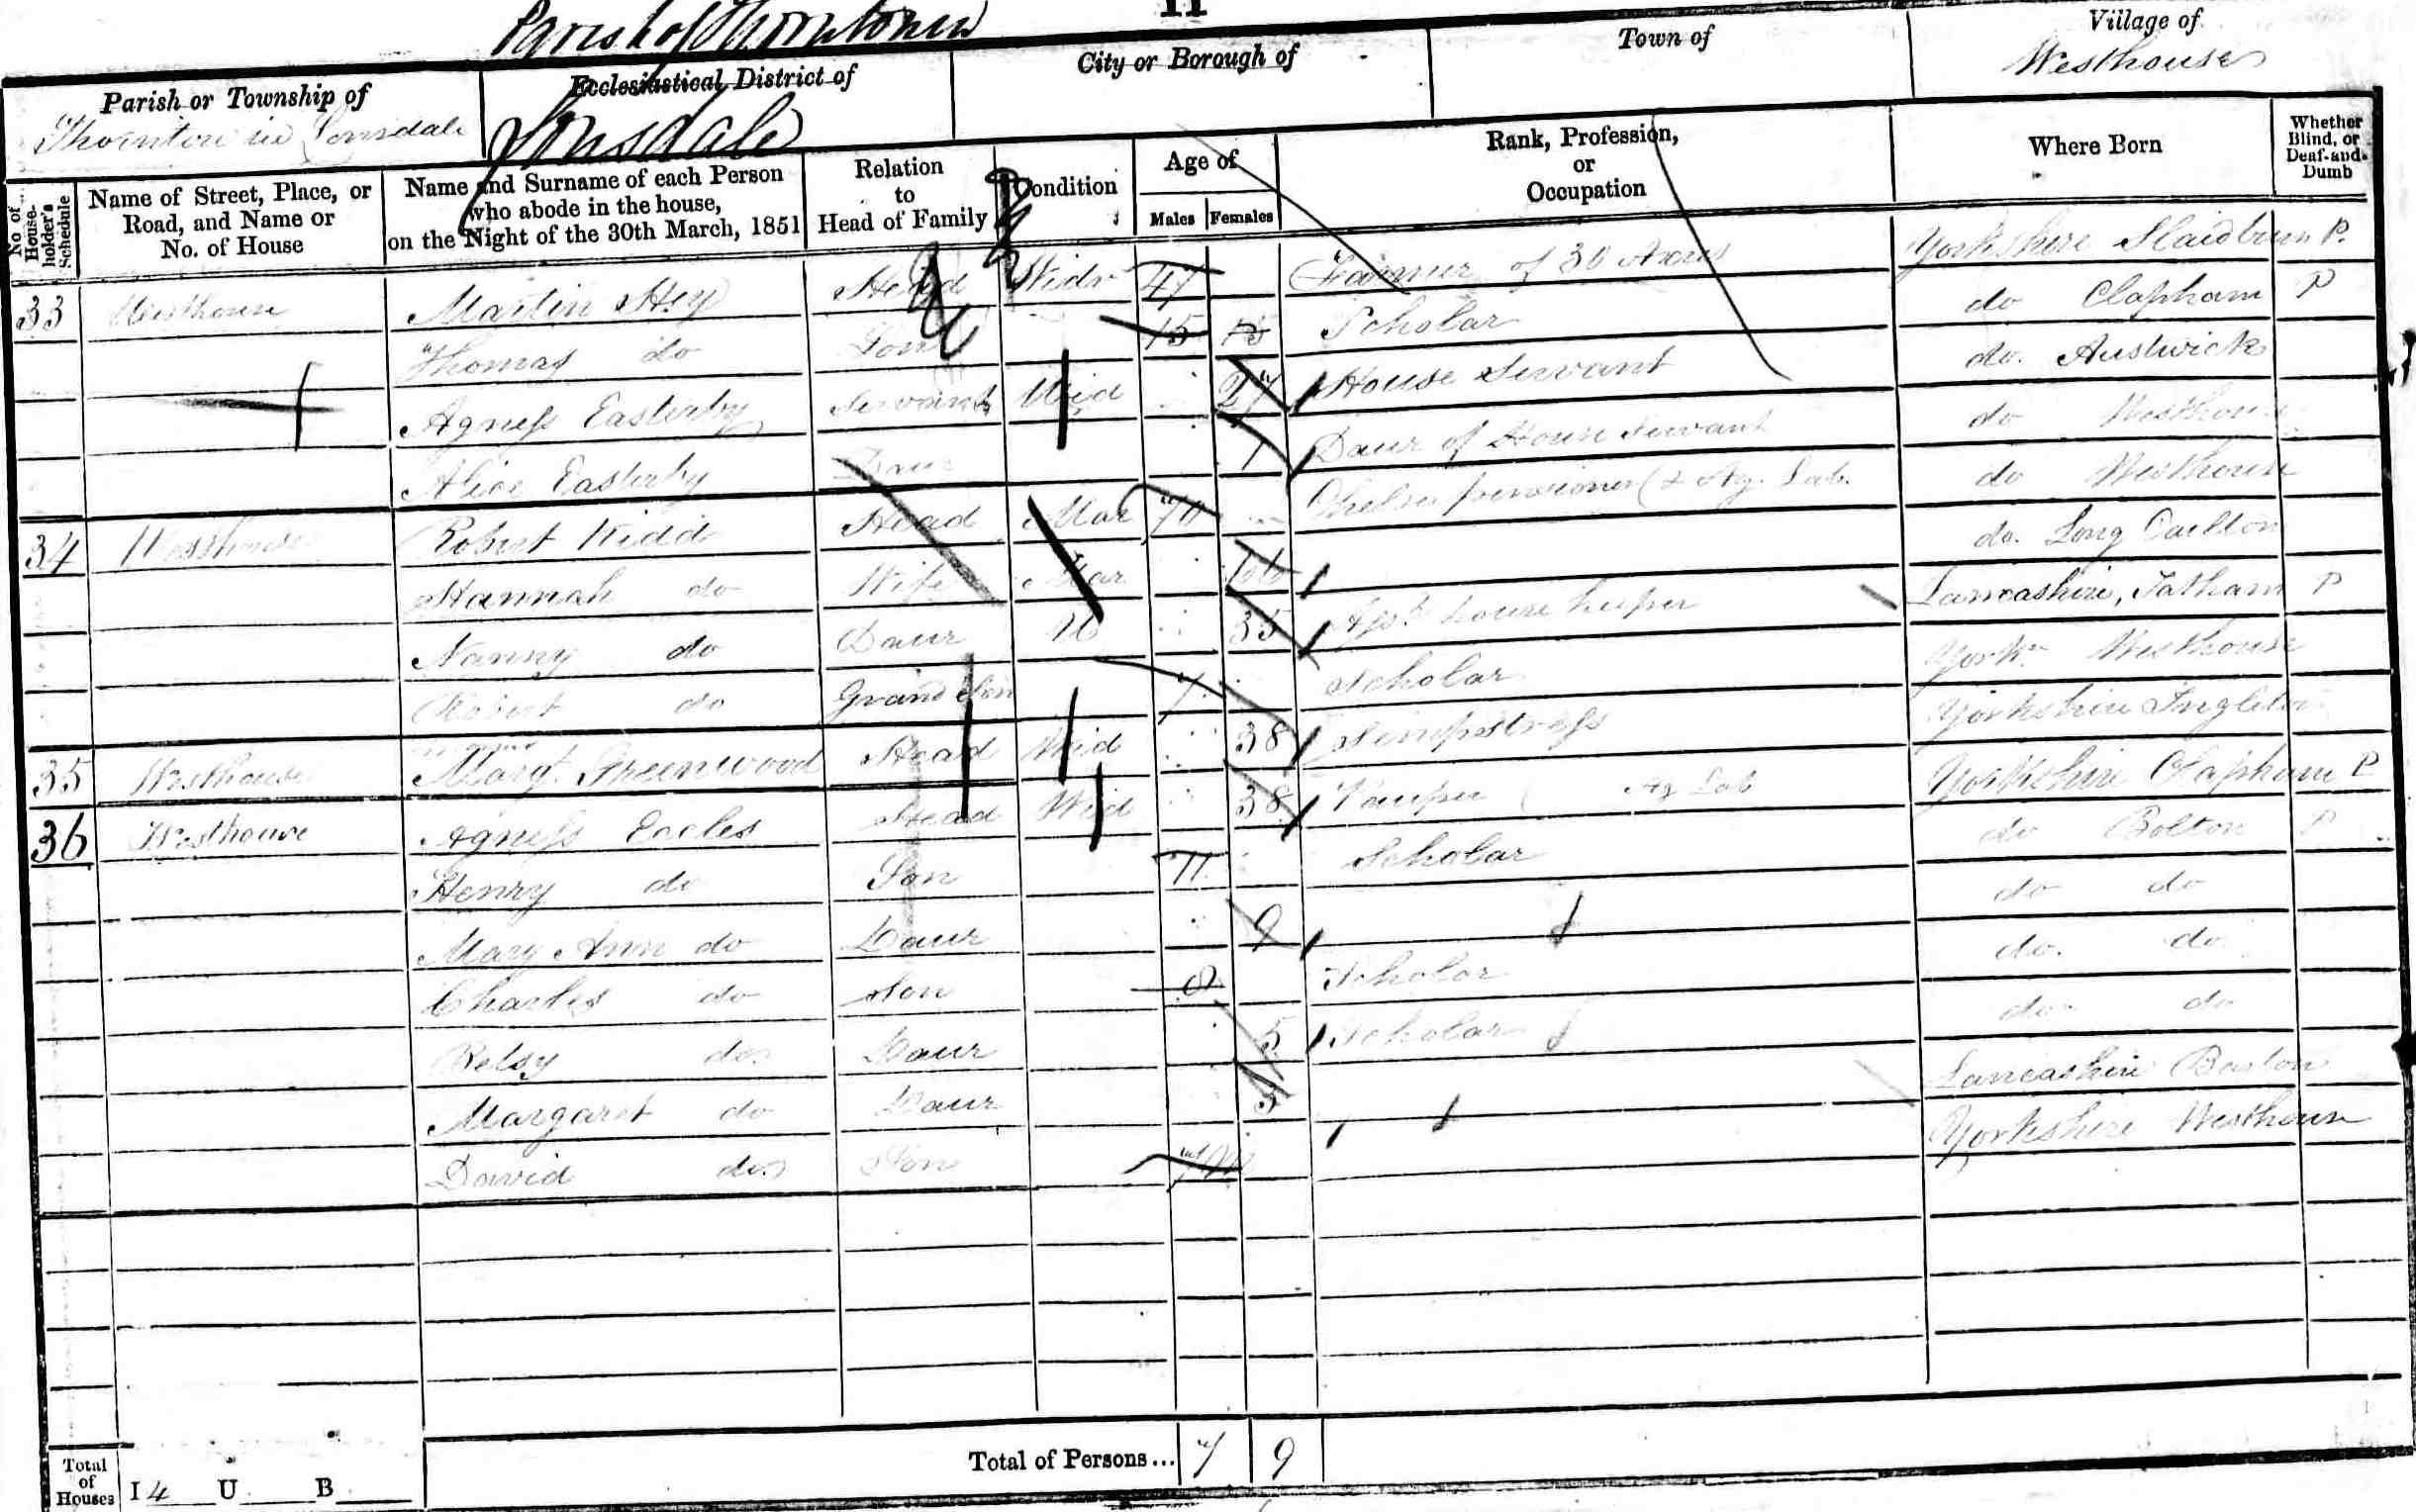 11
Parish of Thornton in
Lonsdale
Parish or Township of
Thornton in Lonsdale
Ecclesiastical District of
City or Borough of
Town of
Village of
Westhouse
No of House-holder's Schedule
Name of Street, Place, or Road, and Name or No. of House
Name and Surname of each Person who abode in the house, on the Night of the 30th March, 1851
Relation to Head of Family
Condition
Age of
Males Females
Rank, Profession, or Occupation
Where Born
Whether Blind, or Deaf-and-Dumb
33 Westhouse Martin Hey Head Widr 47 Farmer of 30 Acres Yorkshire Slaidburn P.
Thomas do Son 15 15 Scholar do Clapham P
Agness Easterby Servant Wid 27 House Servant do. Austwick
Alice Easterby Daur 1 Daur of House Servant do Westhouse
34 Westhouse Robert Kidd Head Mar 70 Chelsea pensioner (& Ag. Lab. do Westhouse
Hannah do Wife Mar 66 do. Long Carlton
Nanny do Daur U 35 house keeper Lancashire, Tatham P
Robert do Grand Son 7 Scholar York Westhouse
35 Westhouse Margt. Greenwood Head Wid 38 Sempstress Yorkshire Ingleton
36 Westhouse Agness Eccles Head Wid 38 Pauper Ag Lab Yorkshire Clapham P
Henry do Son 11 Scholar do Bolton P
Mary Ann do Daur 9 do do
Charles do Son 8 Scholar do. do.
Betsy do. Daur 5 Scholar do. do
Margaret do Daur 3 Lancashire
David do. Son 7 M Yorkshire Westhouse
Total of Houses I 4 U B
Total of Persons... 7 9